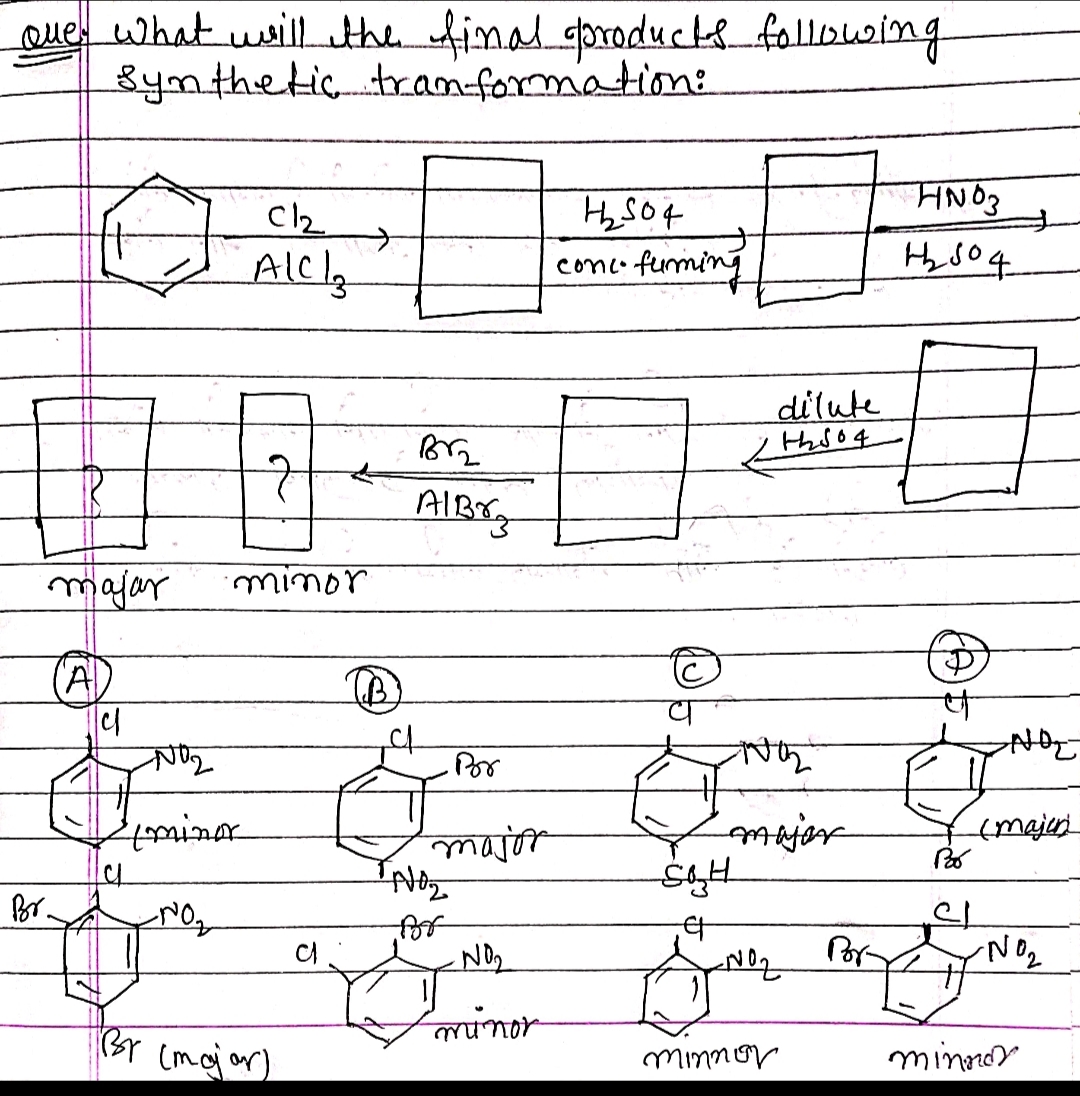 Que: What will the final products following
synthetic tranformation:
Cl2
AlCl3
H2SO4
conc. fumming
HNO3
H2SO4
dilute
H2SO4
Br2
AlBr3
?
?
majar minor
A B C D
Cl
NO2
(minor
Cl
Br
NO2
Br (major)
Cl
Br
major
NO2
Br
Cl
NO2
minor
Cl
NO2
major
SO3H
Cl
NO2
minner
Cl
NO2
(major)
Br
Cl
Br
NO2
minnor